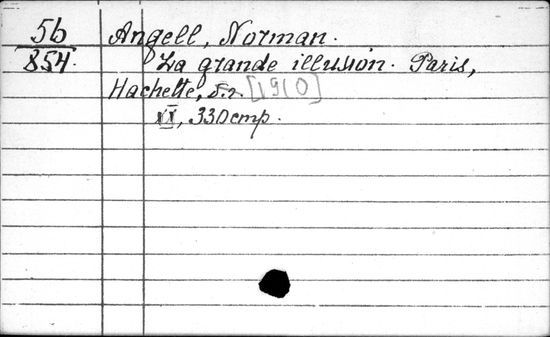 5b Angell, Norman.
854. La grande illusion. Paris,
Hachette, б.г. [1910]
XI, 330 стр.